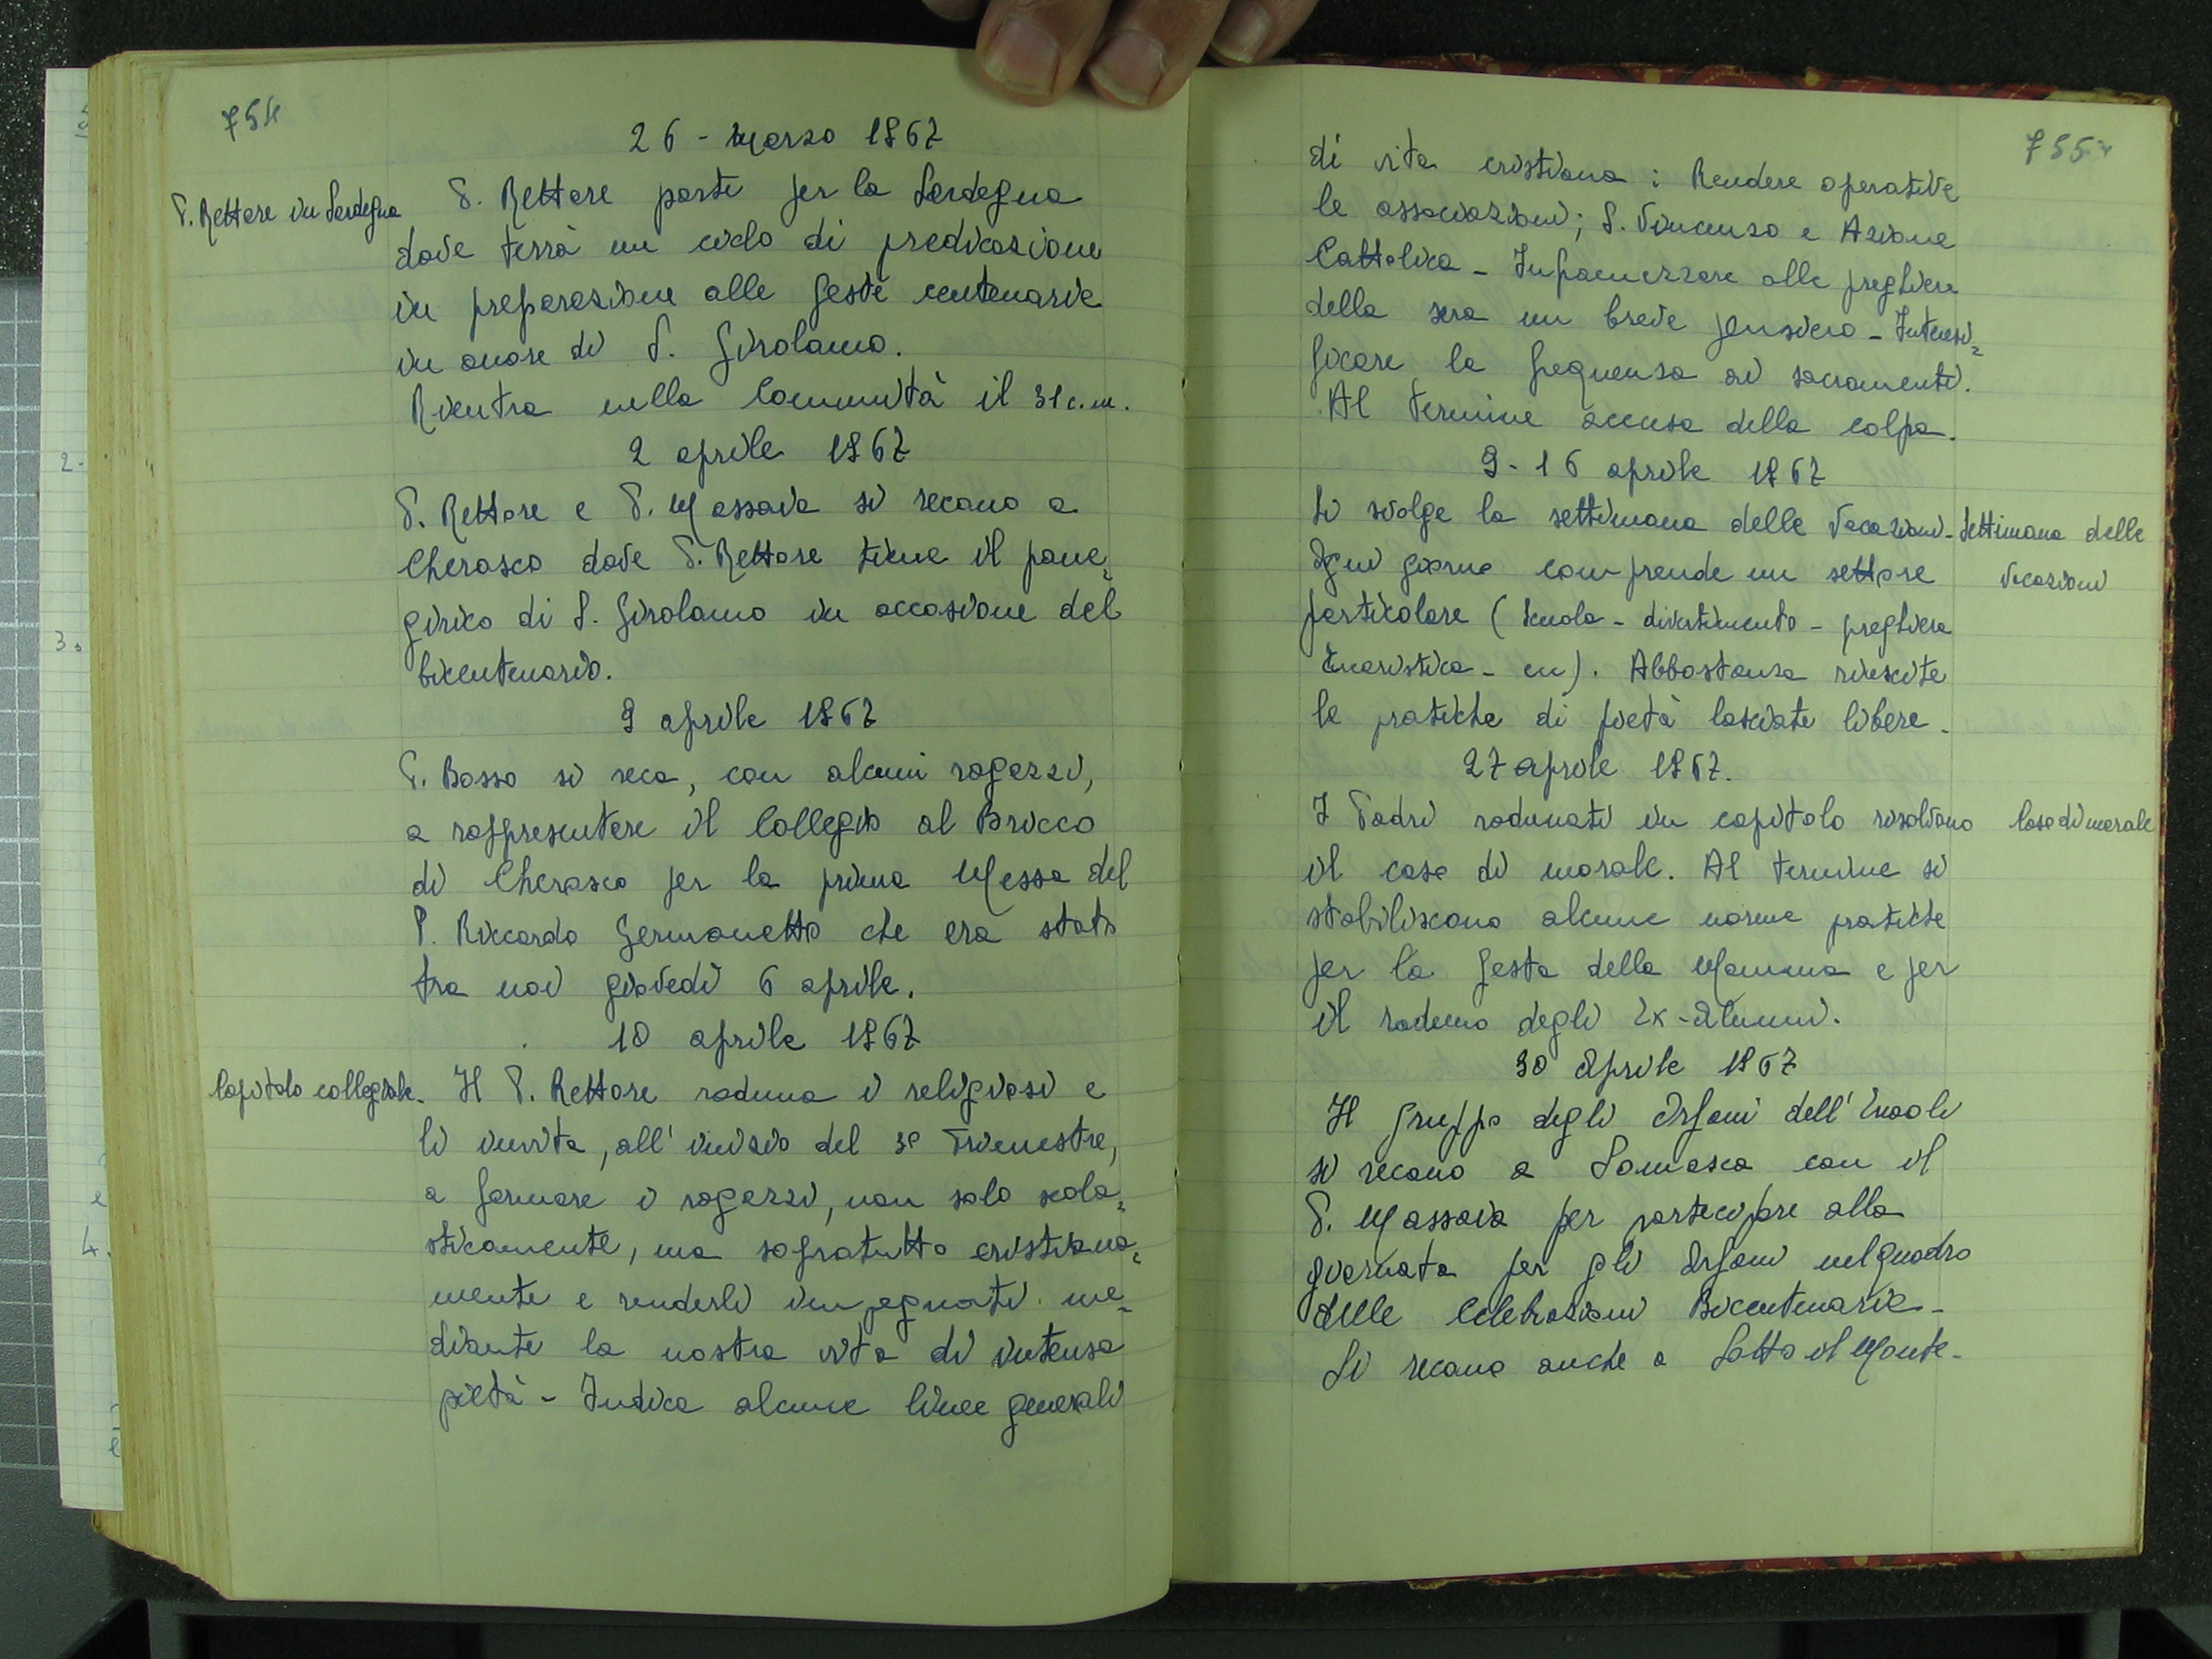 754
26 - Marzo 1967
P. Rettore in Sardegna
P. Rettore parte per la Sardegna
dove terrà un ciclo di predicazione
in preparazione alle feste centenarie
in onore di S. Girolamo.
Rientra nella Comunità il 31 c.m.
2 aprile 1967
P. Rettore e P. Massaia si recano a
Cherasco dove P. Rettore tiene il pane=
girico di S. Girolamo in occasione del
bicentenario.
9 aprile 1967
P. Bosso si reca, con alcuni ragazzi,
a rappresentare il Collegio al Bricco
di Cherasco per la prima Messa del
P. Riccardo Germanetto che era stato
tra noi giovedì 6 aprile.
10 aprile 1967
Capitolo collegiale.
Il P. Rettore raduna i religiosi e
li invita, all' inizio del 3º Trimestre,
a formare i ragazzi, non solo scola=
sticamente, ma sopratutto cristiana=
mente e renderli impegnati me-
diante la nostra vita di intensa
pietà - Indica alcune linee generali
755
di vita cristiana : Rendere operative
le associazioni; S. Vincenzo e Azione
Cattolica - Inframezzare alle preghiere
della sera un breve pensiero - Intensi=
ficare la frequenza ai sacramenti.
Al termine accusa della colpa.
9-16 aprile 1967
Si svolge la settimana delle Vocazioni.
Settimana delle
Vocazioni
Ogni giorno comprende un settore
particolare (Scuola - divertimento - preghiera
Eucaristica - ecc). Abbastanza riuscite
le pratiche di pietà lasciate libere.
27 aprile 1967.
I Padri radunati in capitolo risolvono
Caso di morale
il caso di morale. Al termine si
stabiliscono alcune norme pratiche
per la festa della Mamma e per
il raduno degli Ex-Alunni.
30 Aprile 1967
Il Gruppo degli Orfani dell' Enaoli
si recano a Somasca con il
P. Massaia per partecipare alla
giornata per gli Orfani nel quadro
delle Celebrazioni Bicentenarie -
Si recano anche a Sotto il Monte -